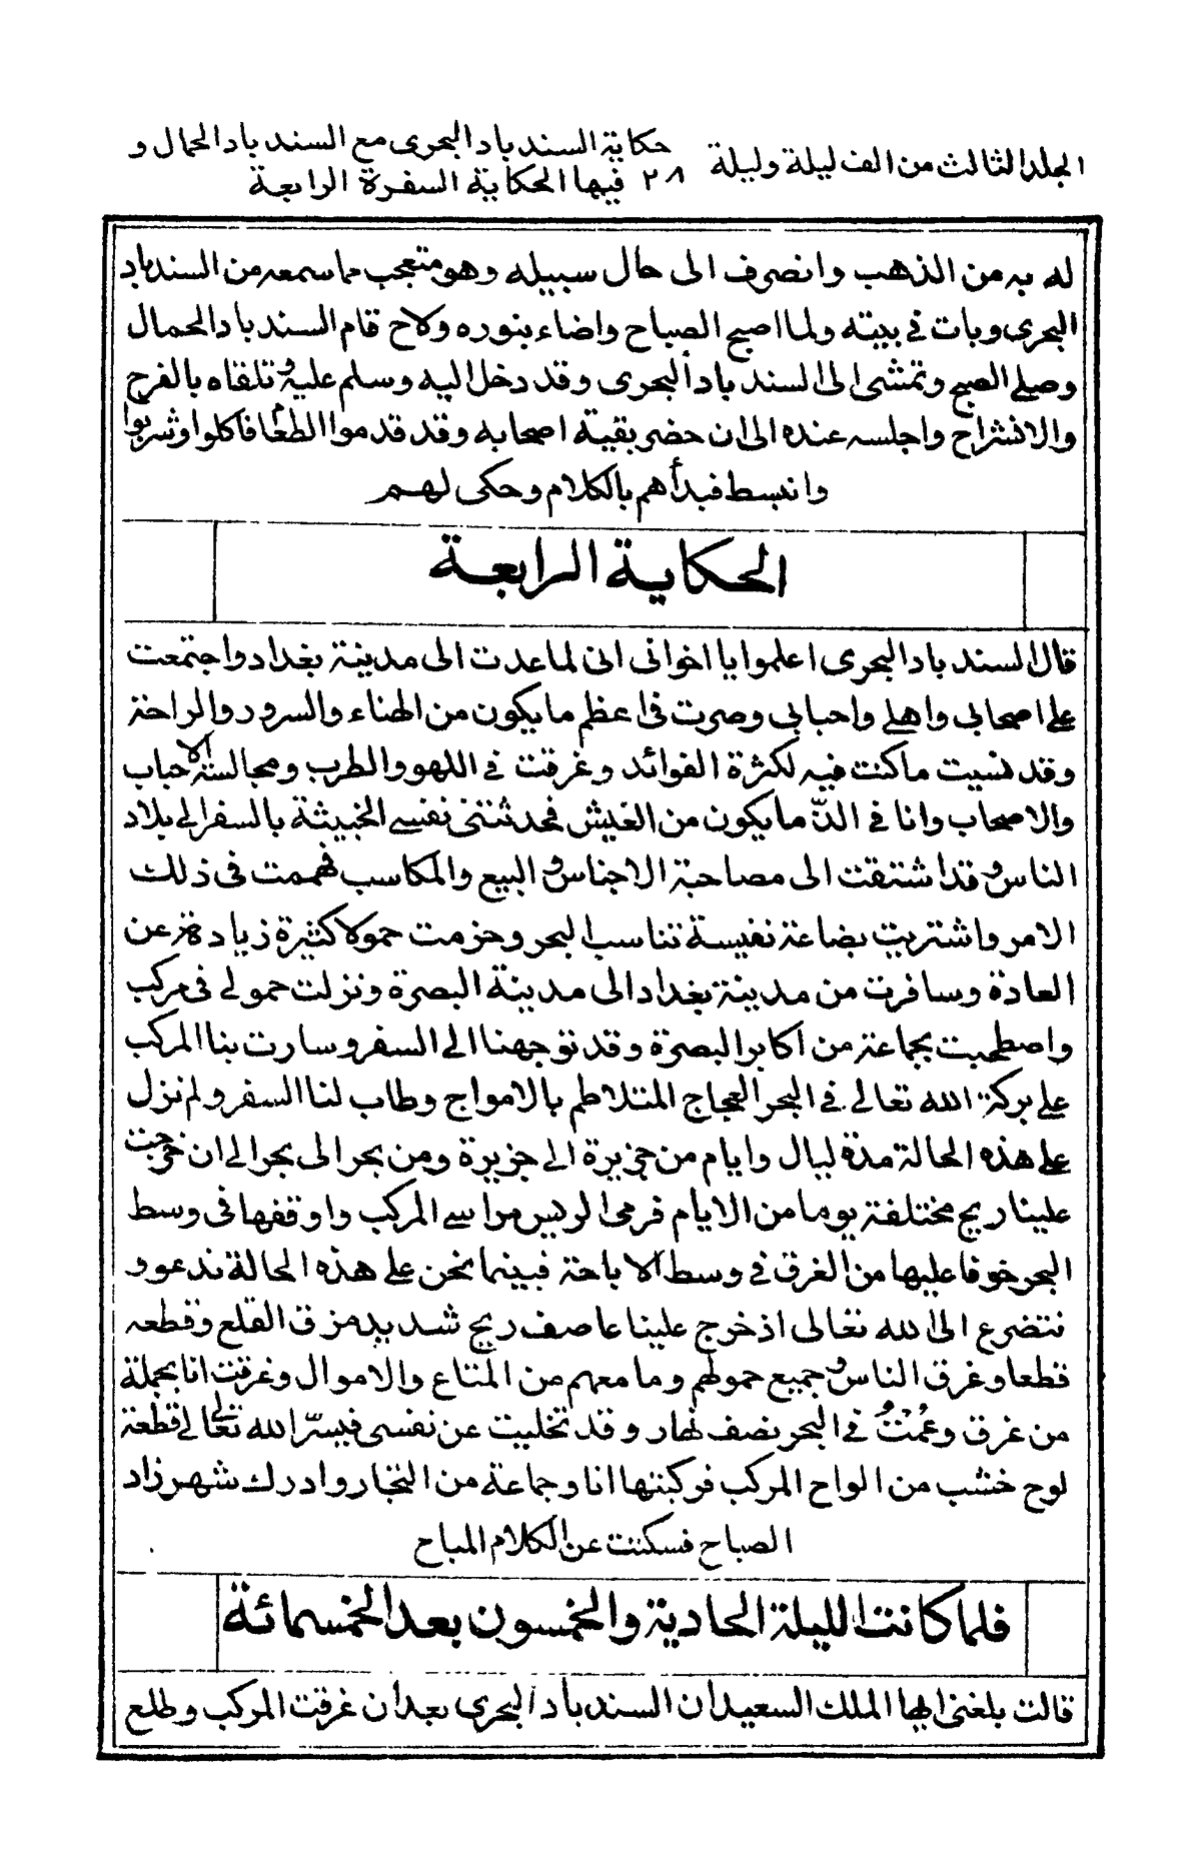 المجلد الثالث من الف ليلة وليلة
حكاية السندباد البحرى مع السندباد الحمال و
٢٨ فيها الحكاية السفرة الرابعة
له به من الذهب وانصرف الى حال سبيله وهو متعجب مما سمعه من السندباد
البحرى وبات فى بيته ولما اصبح الصباح واضاء بنوره ولاح قام السندباد الحمال
وصلى الصبح وتمشى الى السندباد البحرى وقد دخل اليه وسلم عليه وتلقاه بالفرح
والانشراح واجلسه عنده الى ان حضر بقية اصحابه وقد قدموا الطعام فاكلوا وشربوا
وانبسط فبدأهم بالكلام وحكى لهم
الحكاية الرابعة
قال السندباد البحرى اعلموا يا اخوانى انى لما عدت الى مدينة بغداد واجتمعت
على اصحابى واهلى واحبابى وصرت فى اعظم ما يكون من الهناء والسرور والراحة
وقد نسيت ما كنت فيه لكثرة الفوائد وغرقت فى اللهو والطرب ومجالسة الاحباب
والاصحاب وانا فى الذّ ما يكون من العيش فحدثتنى نفسى الخبيثة بالسفر الى بلاد
الناس وقد اشتقت الى مصاحبة الاجناس والبيع والمكاسب فهممت فى ذلك
الامر واشتريت بضاعة نفيسة تناسب البحر وحزمت حمولا كثيرة زيادة عن
العادة وسافرت من مدينة بغداد الى مدينة البصرة ونزلت حمولى فى مركب
واصطحبت بجماعة من اكابر البصرة وقد توجهنا الى السفر وسارت بنا المركب
على بركة الله تعالى فى البحر العجاج المتلاطم بالامواج وطاب لنا السفر ولم نزل
على هذه الحالة مدة ليال وايام من جزيرة الى جزيرة ومن بحر الى بحر الى ان خرجت
علينا ريح مختلفة يوما من الايام فرمى الريس مراسى المركب واوقفها فى وسط
البحر خوفا عليها من الغرق فى وسط الاباحة فبينما نحن على هذه الحالة ندعو و
نتضرع الى الله تعالى اذ خرج علينا عاصف ريح شديد مزق القلع وقطعه
قطعا وغرق الناس وجميع حمولهم وما معهم من المتاع والاموال وغرقت انا بجملة
من غرق وعُمْتُ فى البحر نصف نهار وقد تخليت عن نفسى فيسّر الله تعالى لى قطعة
لوح خشب من الواح المركب فركبتها انا وجماعة من التجار وادرك شهرزاد
الصباح فسكتت عن الكلام المباح
فلما كانت الليلة الحادية والخمسون بعد الخمسمائة
قالت بلغنى ايها الملك السعيد ان السندباد البحرى بعد ان غرقت المركب وطلع